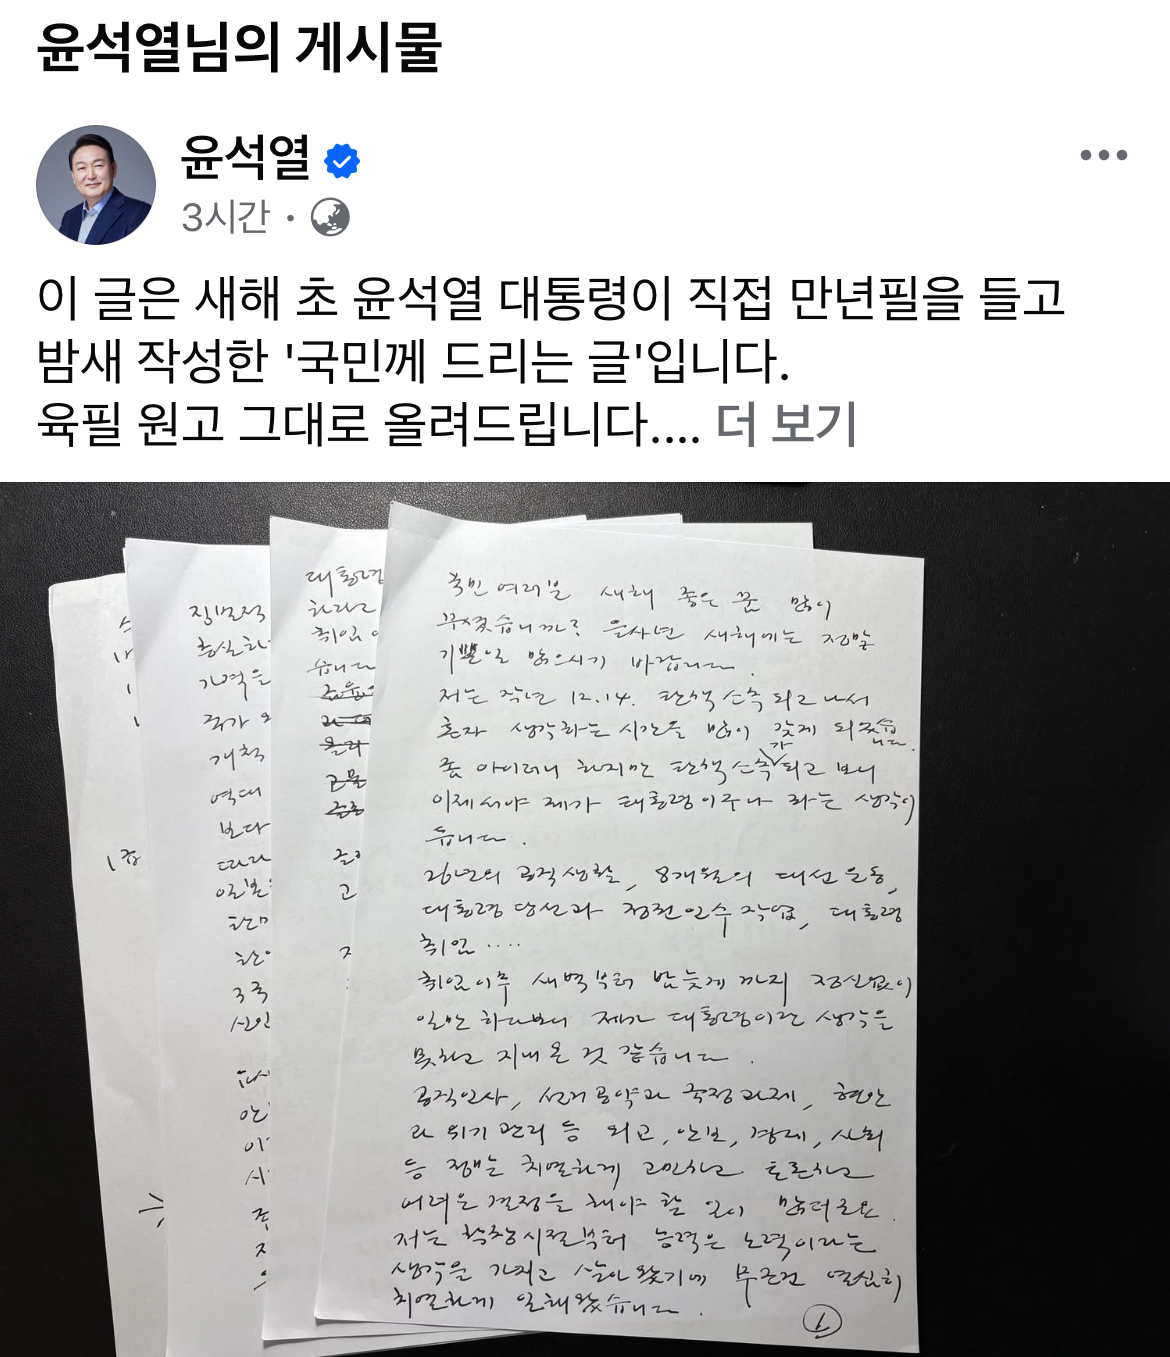 윤석열님의 게시물
윤석열
3시간 ·
이 글은 새해 초 윤석열 대통령이 직접 만년필을 들고
밤새 작성한 '국민께 드리는 글'입니다.
육필 원고 그대로 올려드립니다.... 더 보기
국민 여러분 새해 좋은 꿈 많이
꾸셨습니까? 을사년 새해에는 정말
기쁜일 많으시기 바랍니다.
저는 작년 12.14. 탄핵 소추 되고 나서
혼자 생각하는 시간을 많이 갖게 되었습
니다.
가
좀 아이러니 하지만 탄핵 소추 되고 보니
이제서야 제가 대통령이구나 라는 생각이
듭니다.
26년의 공직생활, 8개월의 대선 운동,
대통령 당선과 정권 인수 작업, 대통령
취임 ....
취임이후 새벽부터 밤늦게 까지 정신없이
일만 하다보니 제가 대통령이란 생각을
못하고 지내 온 것 같습니다.
공직인사, 선거공약과 국정과제, 현안
과 위기 관리 등 외교, 안보, 경제, 사회
등 정책는 치열하게 고민하고 토론하고
어려운 결정을 해야 할 일이 많더군요.
저는 학창시절부터 능력은 노력이라는
생각을 가지고 살아 왔기에 무조건 열심히
치열하게 일해왔습니다.
1
대통령
하라고
취임
습니다
고
직무
충실하
기억을
국가
개척
역대
보다
따라
일본
한미
3국